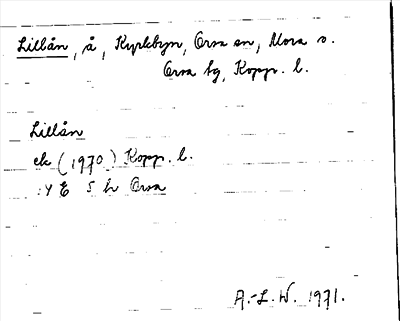 Lillån, å, Kyrkbyn, Orsa sn, Mora s.
Orsa kg, Kopp. l.
Lillån
ek (1970) Kopp. l.
:4 E 5 h Orsa
A.-L. W. 1971.